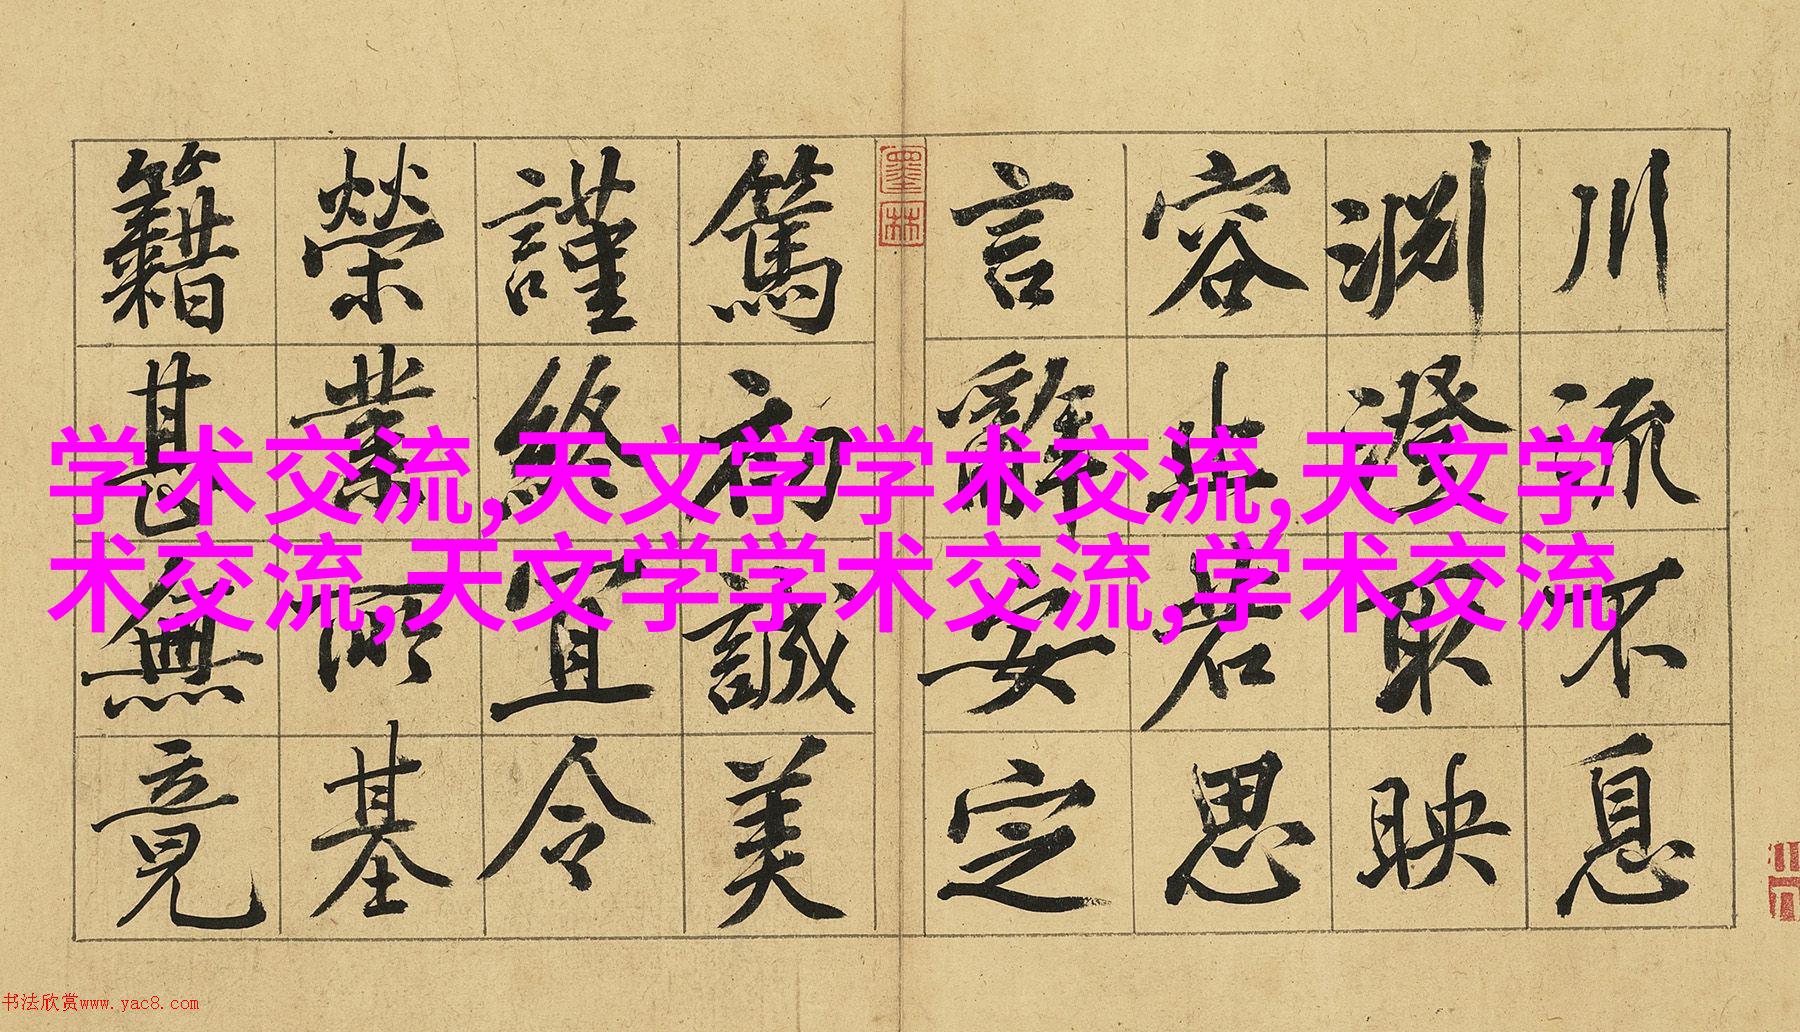 川流不息
淵澄取映
容止若思
言辭安定
篤初誠美
謹終宜令
榮業所基
籍甚無竟
墨林
学术交流,天文学学术交流,天文学
术交流,天文学学术交流,学术交流
书法欣赏www.yac8.com